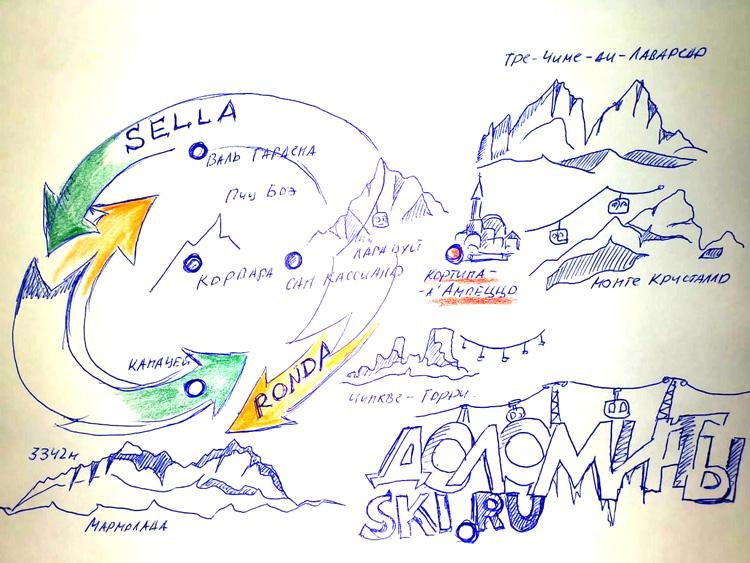 ТРЕ-ЧИМЕ-ДИ-ЛАВАРЕДО
SELLA
ВАЛЬ ГАРДЕНА
Пиц Боэ
ЛАГАЦУЙ
КОРВАРА
САН КАССИАНО
КОРТИНА-
-Д'АМПЕЦЦО
МОНТЕ КРИСТАЛЛО
КАНАЦЕЙ
RONDA
ЧИНКВЕ-ТОРРИ
3342м
МАРМОЛАДА
ДОЛОМИТЫ
SKI.RU